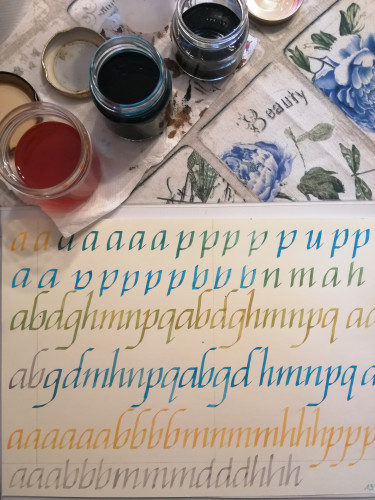 Beauty
a a a a a a a p p p p p u p p
a a p p p p p b b b n m a h
abdghmnpqabdghmnpq aa
abgdmhnpqabgd hmnpq a
aaaaaabbbbmnmmhhhppp
aaabbbmmmdddhhh